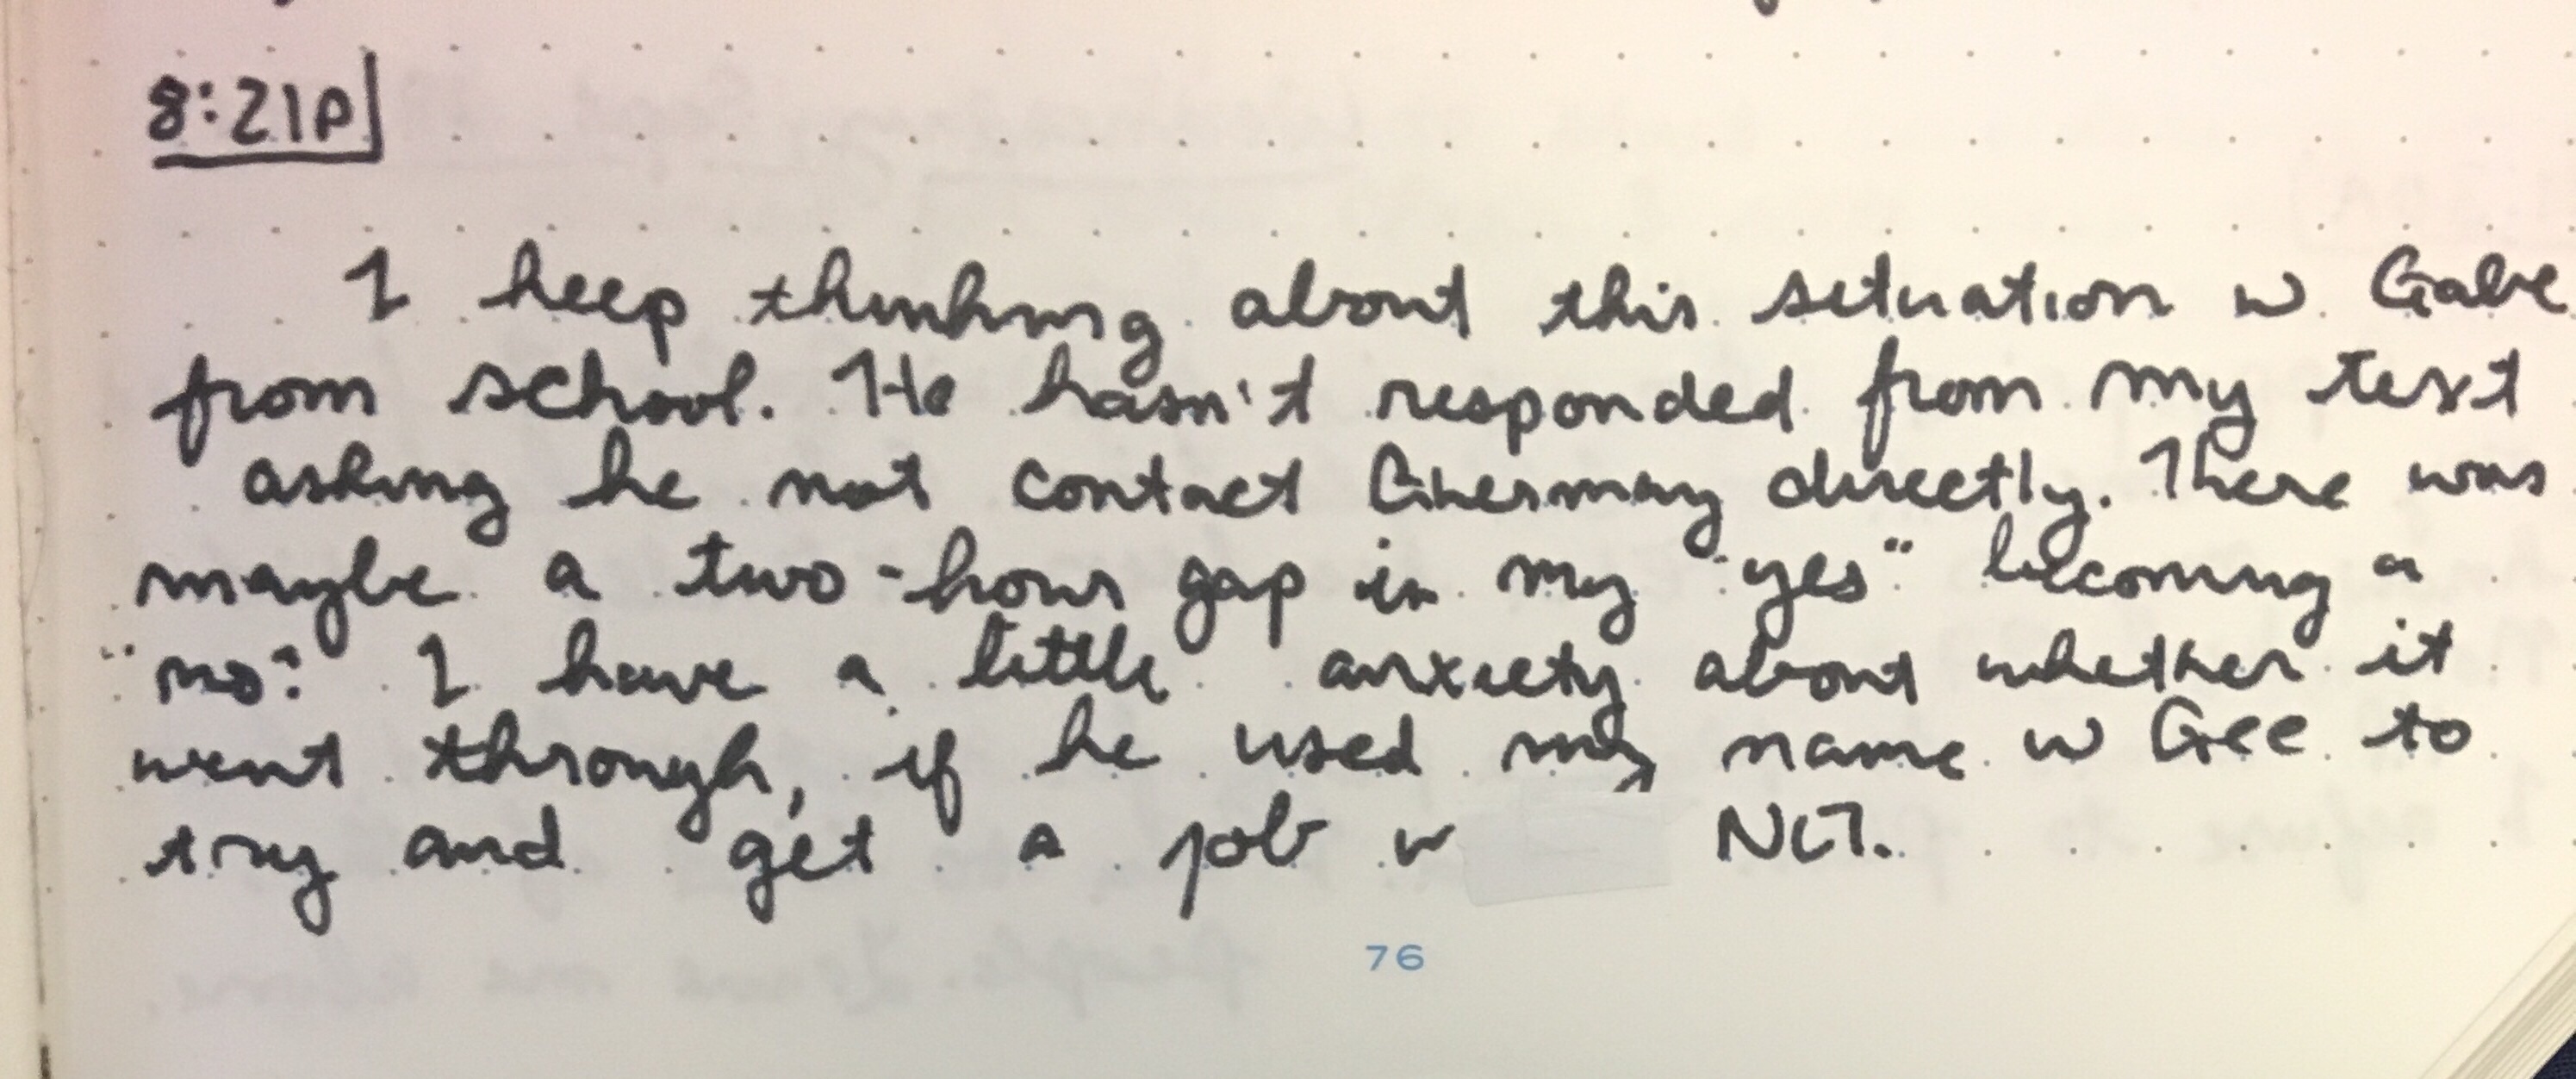 8:21P
I keep thinking about this situation w Gabe
from school. He hasn't responded from my text
asking he not contact Ghermay directly. There was
maybe a two-hour gap in my "yes" becoming a
"no". I have a little anxiety about whether it
went through, if he used my name w Gee to
try and get a job w
76